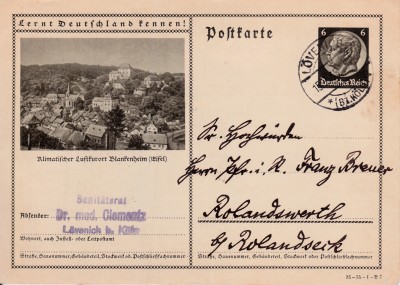 Lernt Deutschland kennen!
Postkarte
6 6
Deutsches Reich
LÖVE
(BZ. KÖLN)
Klimatischer Luftkurort Blankenheim (Eifel)
Sr. Hochwürden
Herrn Pfr. i. R. Franz Breuer
Rolandswerth
b/ Rolandseck
Absender:
Sanitätsrat
Dr. med. Clementz
Lövenich b. Köln
Wohnort, auch Zustell- oder Leitpostamt
Straße, Hausnummer, Gebäudeteil, Stockwerk od. Postschließfachnummer
Straße, Hausnummer, Gebäudeteil, Stockwerk od. Postschließfachnummer